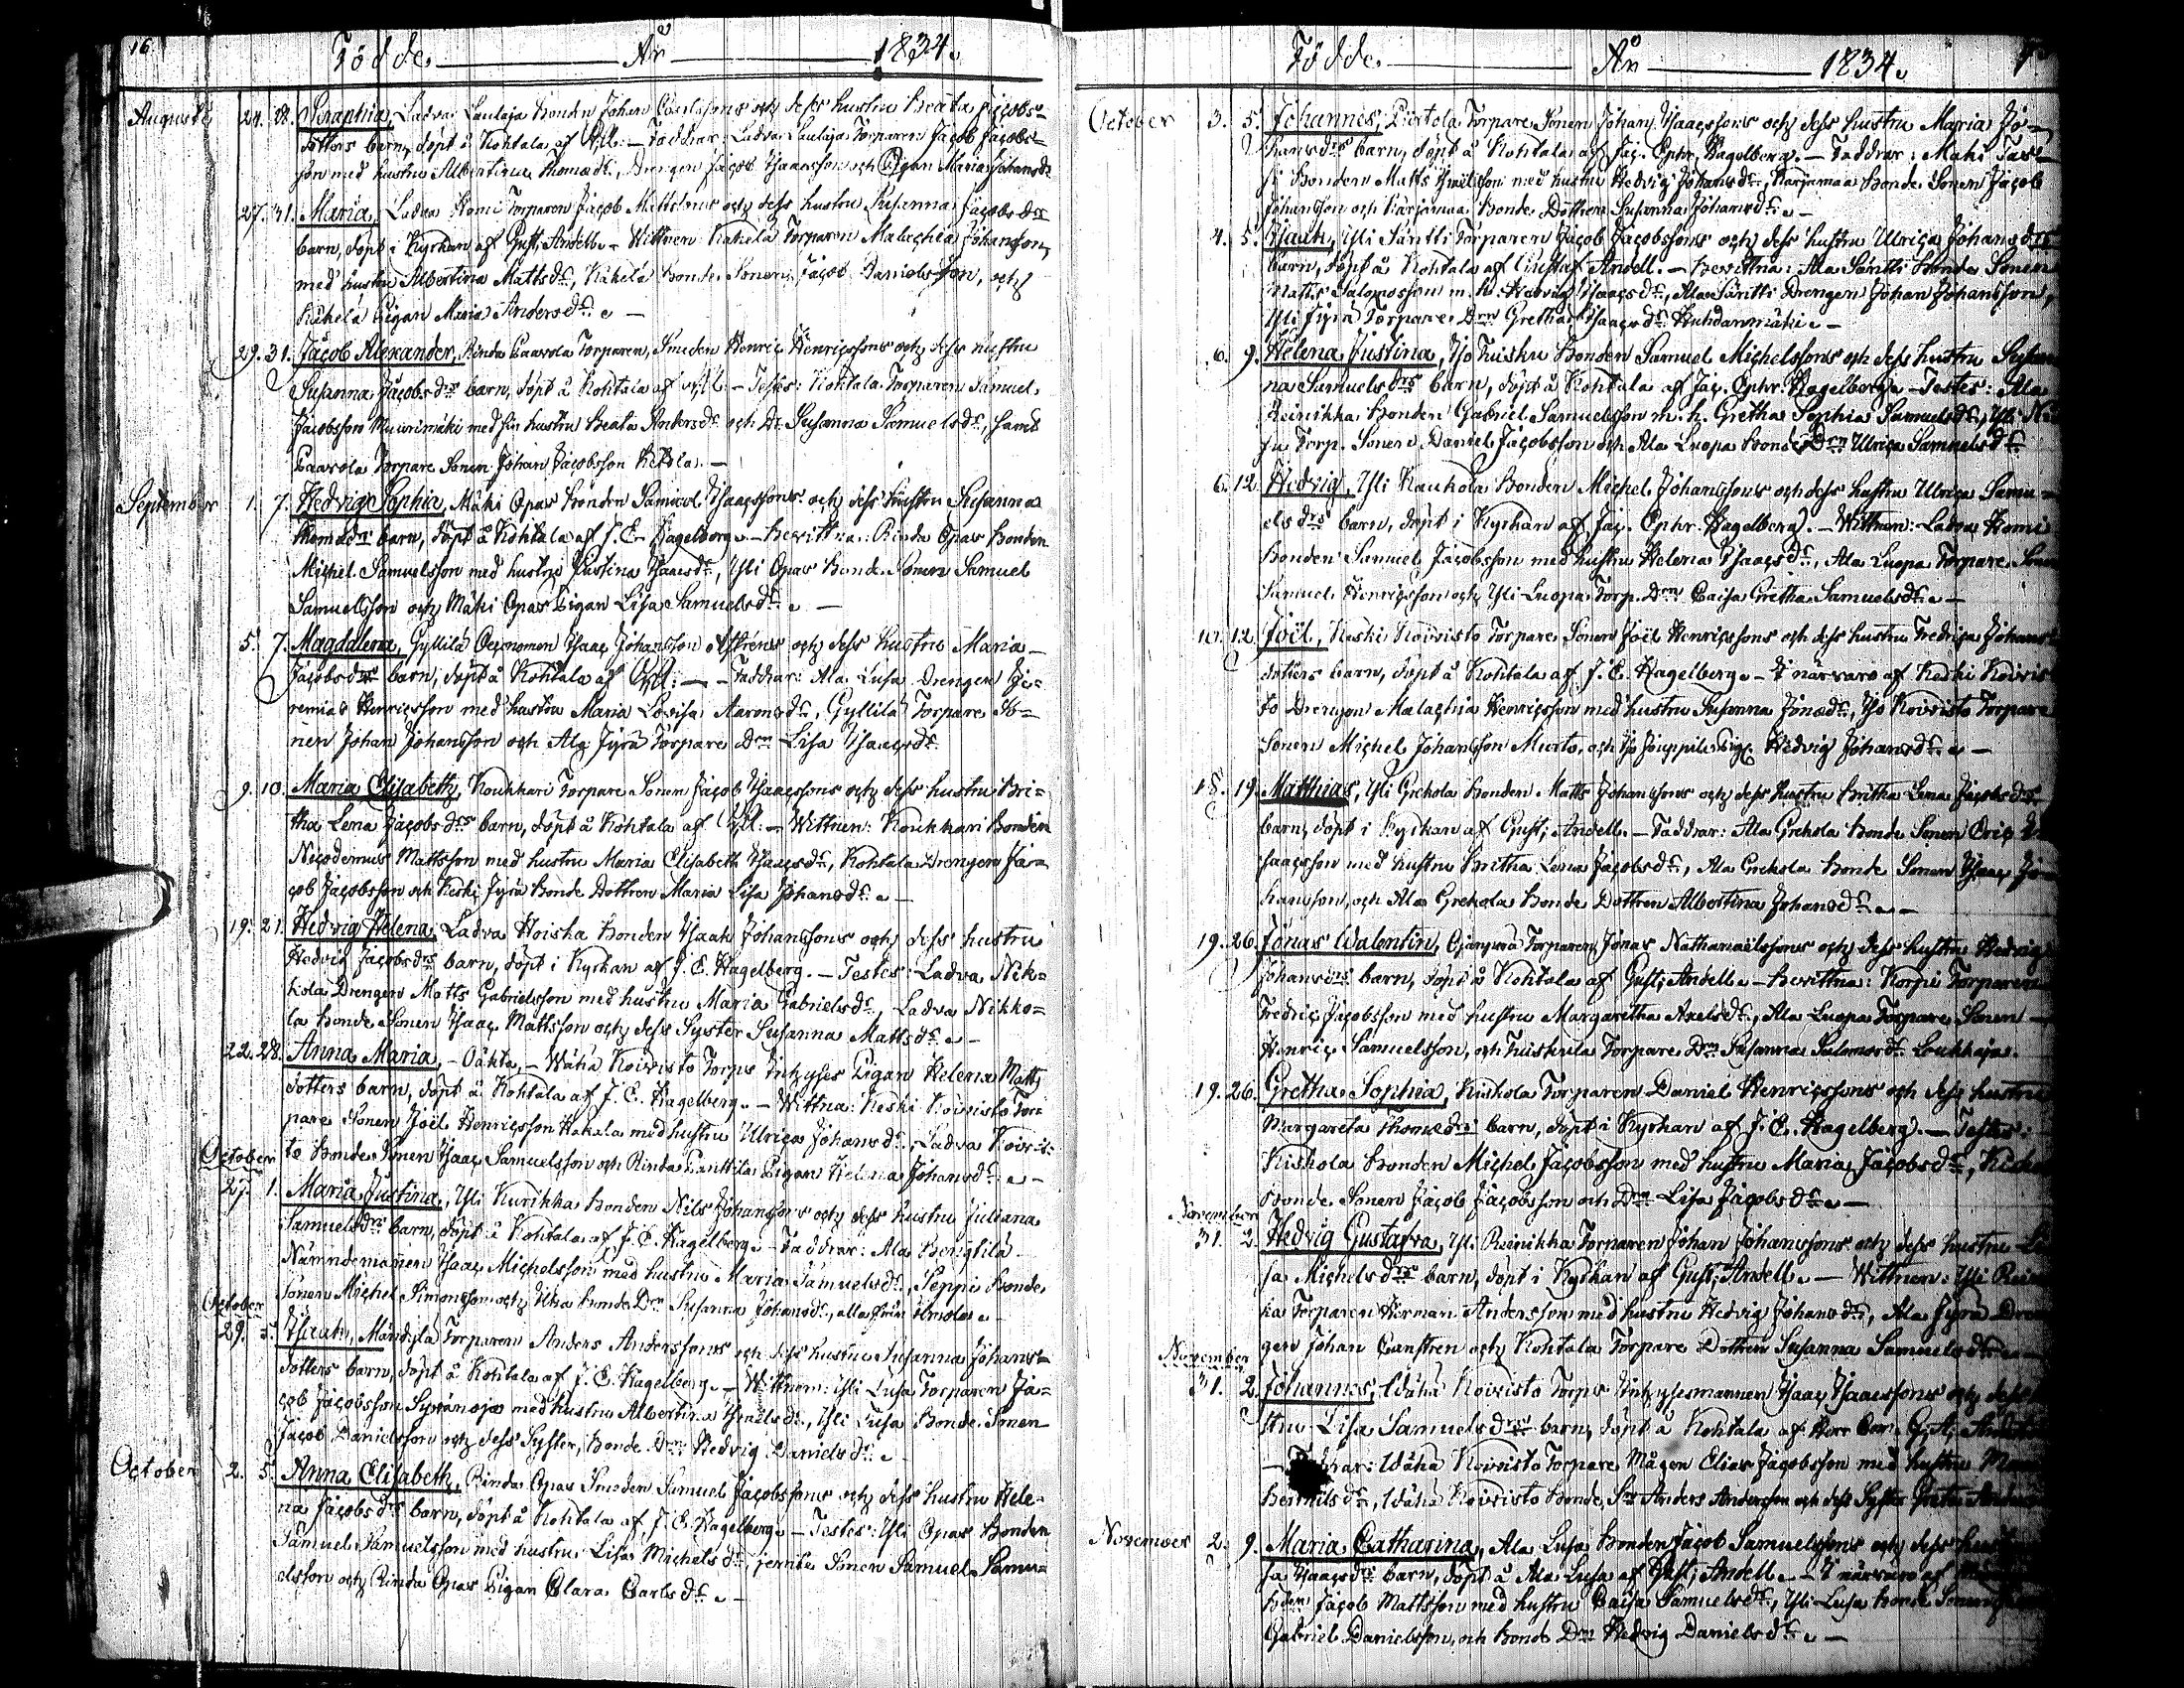 16.
Födde. År 1834.
Augusti 24. 28. Seraphia, Ladva Laulaja Bonden Johan Carlssons och dess hustru Beata Jacobs-
dotters barn, döpt å Kohtala af – Faddrar: Ladva Laulaja Torparen Jacob Jacobs-
son med hustru Albertina Thomædr, Drengen Jacob Isaacsson och Pigan Maria Johansdr
27. 31. Maria, Ladva Homi Torparen Jacob Mattssons och dess hustru Susanna Jacobsdrs
barn, döpt i Kyrkan af Gust: Andell. – Wittnen: Kakela Torparen Malachia Johansson,
med hustru Albertina Mattsdr, Kakela Bonde Sonen Jacob Danielsson, och
Kakela Pigan Maria Andersdr. –
29. 31. Jacob Alexander, Rinda Paavola Torparen, Smeden Henric Henricssons och dess hustru
Susanna Jacobsdrs barn, döpt å Kohtala af – Testes: Kohtala Torparen Samuel
Jacobsson Muurimäki med sin hustru Beata Andersdr och Dr Susanna Samuelsdr, samt
Paavola Torpare Sonen Johan Jacobsson Ketola. –
September 1. 7. Hedvig Sophia, Mäki Opas Bonden Samuel Isaacssons och dess hustru Susanna
Thomædrs barn, döpt å Kohtala af J. E. Hagelberg. – Bevittna: Rinda Opas Bonden
Michel Samuelsson med hustru Justina Isaacsdr, Yli Opas Bonde Sonen Samuel
Samuelsson och Mäki Opas Pigan Lisa Samuelsdr. –
5. 7. Magdalena, Gyllilä Oeconomen Isaac Johansson Asséens och dess hustru Maria
Jacobsdrs barn, döpt å Kohtala af – Faddrar: Ala Lusa Drengen Je-
remias Henricsson med hustru Maria Lovisa Aaronsdr, Gyllilä Torpare So-
nen Johan Johansson och Ala Jyrä Torpare Drn Lisa Isaacsdr.
9. 10. Maria Elisabeth, Koukkari Torpare Sonen Jacob Isaacssons och dess hustru Bri-
tha Lena Jacobsdrs barn, döpt å Kohtala af – Wittnen: Koukkari Bonden
Nicodemus Mattsson med hustru Maria Elisabeth Isaacsdr, Kohtala Drengen Ja-
cob Jacobsson och Keski Jyrä Bonde Dottren Maria Lisa Johansdr. –
19. 21. Hedvig Helena, Ladva Hoiska Bonden Isaak Johanssons och dess hustru
Hedvig Jacobsdrs barn, döpt i Kyrkan af J. E. Hagelberg. – Testes: Ladva Nik-
kola Drengen Matts Gabrielsson med hustru Maria Gabrielsdr, Ladva Nikko-
la Bonde Sonen Isaac Mattsson och dess Syster Susanna Mattsdr. –
22. 28. Anna Maria, – Oäkta, – Wäha Koivisto Torps Inhyses Pigan Helena Matts
dotters barn, döpt å Kohtala af J. E. Hagelberg. – Wittna: Keski Koivisto Tor-
pare Sonen Joël Henricsson Hakala med hustru Ulrica Johansdr, Ladva Koivis-
to Bonde Sonen Isaac Samuelsson och Rinda Panttila Pigan Helena Johansdr. –
October
27. 1. Maria Justina, Yli Kurikka Bonden Nils Johanssons och dess hustru Juliana
Samuelsdrs barn, döpt å Kohtala af J. E. Hagelberg. – Faddrar: Ala Bengtilä
Nämndemannen Isaac Michelsson med hustru Maria Samuelsdr, Seppi Bonde
Sonen Michel Simonsson och Bonde Dr Susanna Johansdr, alla från
October
29. 5. Isaak, Mändylä Torparen Anders Anderssons och dess hustru Susanna Johans-
dotters barn, döpt å Kohtala af J. E. Hagelberg. – Wittnen: Yli Lusa Torparen Ja-
cob Jacobsson Syvänoja med hustru Albertina Israelsdr, Yli Lusa Bonde Sonen
Jacob Danielsson och dess Syster, Bonde Drn Hedvig Danielsdr. –
October 2. 5. Anna Elisabeth, Rinda Opas Smeden Samuel Jacobssons och dess hustru Hele-
na Jacobsdrs barn, döpt å Kohtala af J. E. Hagelberg. – Testes: Yli Opas Bonden
Samuel Samuelsson med hustru Lisa Michelsdr, jemte Sonen Samuel Samu-
elsson och Rinda Opas Pigan Clara Carlsdr. –
Födde. År 1834.
October 3. 5. Johannes, Pertola Torpare Sonen Johan Isaacssons och dess hustru Maria Jo-
hansdrs barn, döpt å Kohtala af Jac. Ephr. Hagelberg. – Faddrar: Mäki
Bonden Matts Israelsson med hustru Hedvig Johansdr, Karjanmaa Bonde Sonen Jacob
Johansson och Karjanmaa Bonde Dottren Susanna Johansdr. –
4. 5. Isaak, Yli Säntti Torparen Jacob Jacobssons och dess hustru Ulrica Johansdrs
barn, döpt å Kohtala af Gustaf Andell. – Bevittna: Ala Säntti Bonde Sonen
Matts Salomosson m. h. Hedvig Isaacsdr, Ala Säntti Drengen Johan Johansson,
Yli Jyrä Torpare Drn Gretha Isaacsdr Huhdanmäki. –
6. 9. Helena Justina, Iso Tuisku Bonden Samuel Michelssons och dess hustru Susan-
na Samuelsdrs barn, döpt å Kohtala af Jac. Ephr. Hagelberg. – Testes: Ala
Reinikka Bonden Gabriel Samuelsson m. h. Gretha Sophia Samuelsdr, Yli
Torp. Sonen Daniel Jacobsson och Ala Luopa Bonde Drn Ulrica Samuelsdr
6. 12. Hedvig, Yli Kaukola Bonden Michel Johanssons och dess hustru Ulrica Samu-
elsdrs barn, döpt i Kyrkan af Jac. Ephr. Hagelberg. – Wittnen: Ladva Homi
Bonden Samuel Jacobsson med hustru Helena Isaacsdr, Ala Luopa Torpare
Samuel Henricsson och Yli Luopa Torp. Drn Caisa Gretha Samuelsdr. –
10. 12. Joël, Keski Koivisto Torpare Sonen Joël Henricssons och dess hustru Fredrica Johans
dotters barn, döpt å Kohtala af J. E. Hagelberg. – I närvaro af Keski Koivis
to Drengen Malachia Henricsson med hustru Susanna Jonædr, Iso Koivisto Torpare
Sonen Michel Johansson Murto, och Iso Jouppila Pig. Hedvig Johansdr. –
18. 19. Matthias, Yli Grekola Bonden Matts Johanssons och dess hustru Britha Lena Jacobsdrs
barn, döpt i Kyrkan af Gust: Andell. – Faddrar: Ala Grekola Bonde Sonen Eric
saacsson med hustru Britha Lena Jacobsdr, Ala Grekola Bonde Sonen Isaac Jo
hansson, och Ala Grekola Bonde Dottren Albertina Johansdr. –
19. 26. Jonas Walentin, Ojanperä Torparen Jonas Nathanaëlssons och dess hustru Hedvig
Johansdrs barn, döpt å Kohtala af Gust: Andell. – Bevittna: Korpi Torparen
Fredric Jacobsson med hustru Margaretha Axelsdr, Ala Luopa Torpare Sonen
Henric Samuelsson, och Tuiskula Torpare Drn Susanna Salomosdr Loukkaja.
19. 26. Gretha Sophia, Kiskola Torparen Daniel Henricssons och dess hustru
Margareta Thomædrs barn, döpt i Kyrkan af J. E. Hagelberg. – Testes:
Kiskola Bonden Michel Jacobsson med hustru Maria Jacobsdr,
Bonde Sonen Jacob Jacobsson och Drn Lisa Jacobsdr. –
November
31. 2. Hedvig Gustafva, Yli Reinikka Torparen Johan Johanssons och dess hustru
sa Michelsdrs barn, döpt i Kyrkan af Gust: Andell. – Wittnen: Yli
ka Torparen Herman Andersson med hustru Hedvig Johansdr, Ala Jyrä
gen Johan Canstren och Kohtala Torpare Dottren Susanna Samuelsdr
November
31. 2. Johannes, Wäha Koivisto Torps Inhysesmannen Isaac Isaacssons och dess
stru Lisa Samuelsdrs barn, döpt å Kohtala af Herr
Faddrar: Wäha Koivisto Torpare Mågen Elias Jacobsson med hustru
Wäha Koivisto Bonde Sn Anders Andersson och dess Syster Greta
November 2. 9. Maria Catharina, Ala Lusa Bonden Jacob Samuelssons och dess
sa Isaacsdrs barn, döpt å Ala Lusa af Gust: Andell. – I närvaro af
Jacob Mattsson med hustru Caisa Samuelsdr, Yli Lusa Bonde Sonen
Gabriel Danielsson, och Bonde Drn Hedvig Danielsdr. –